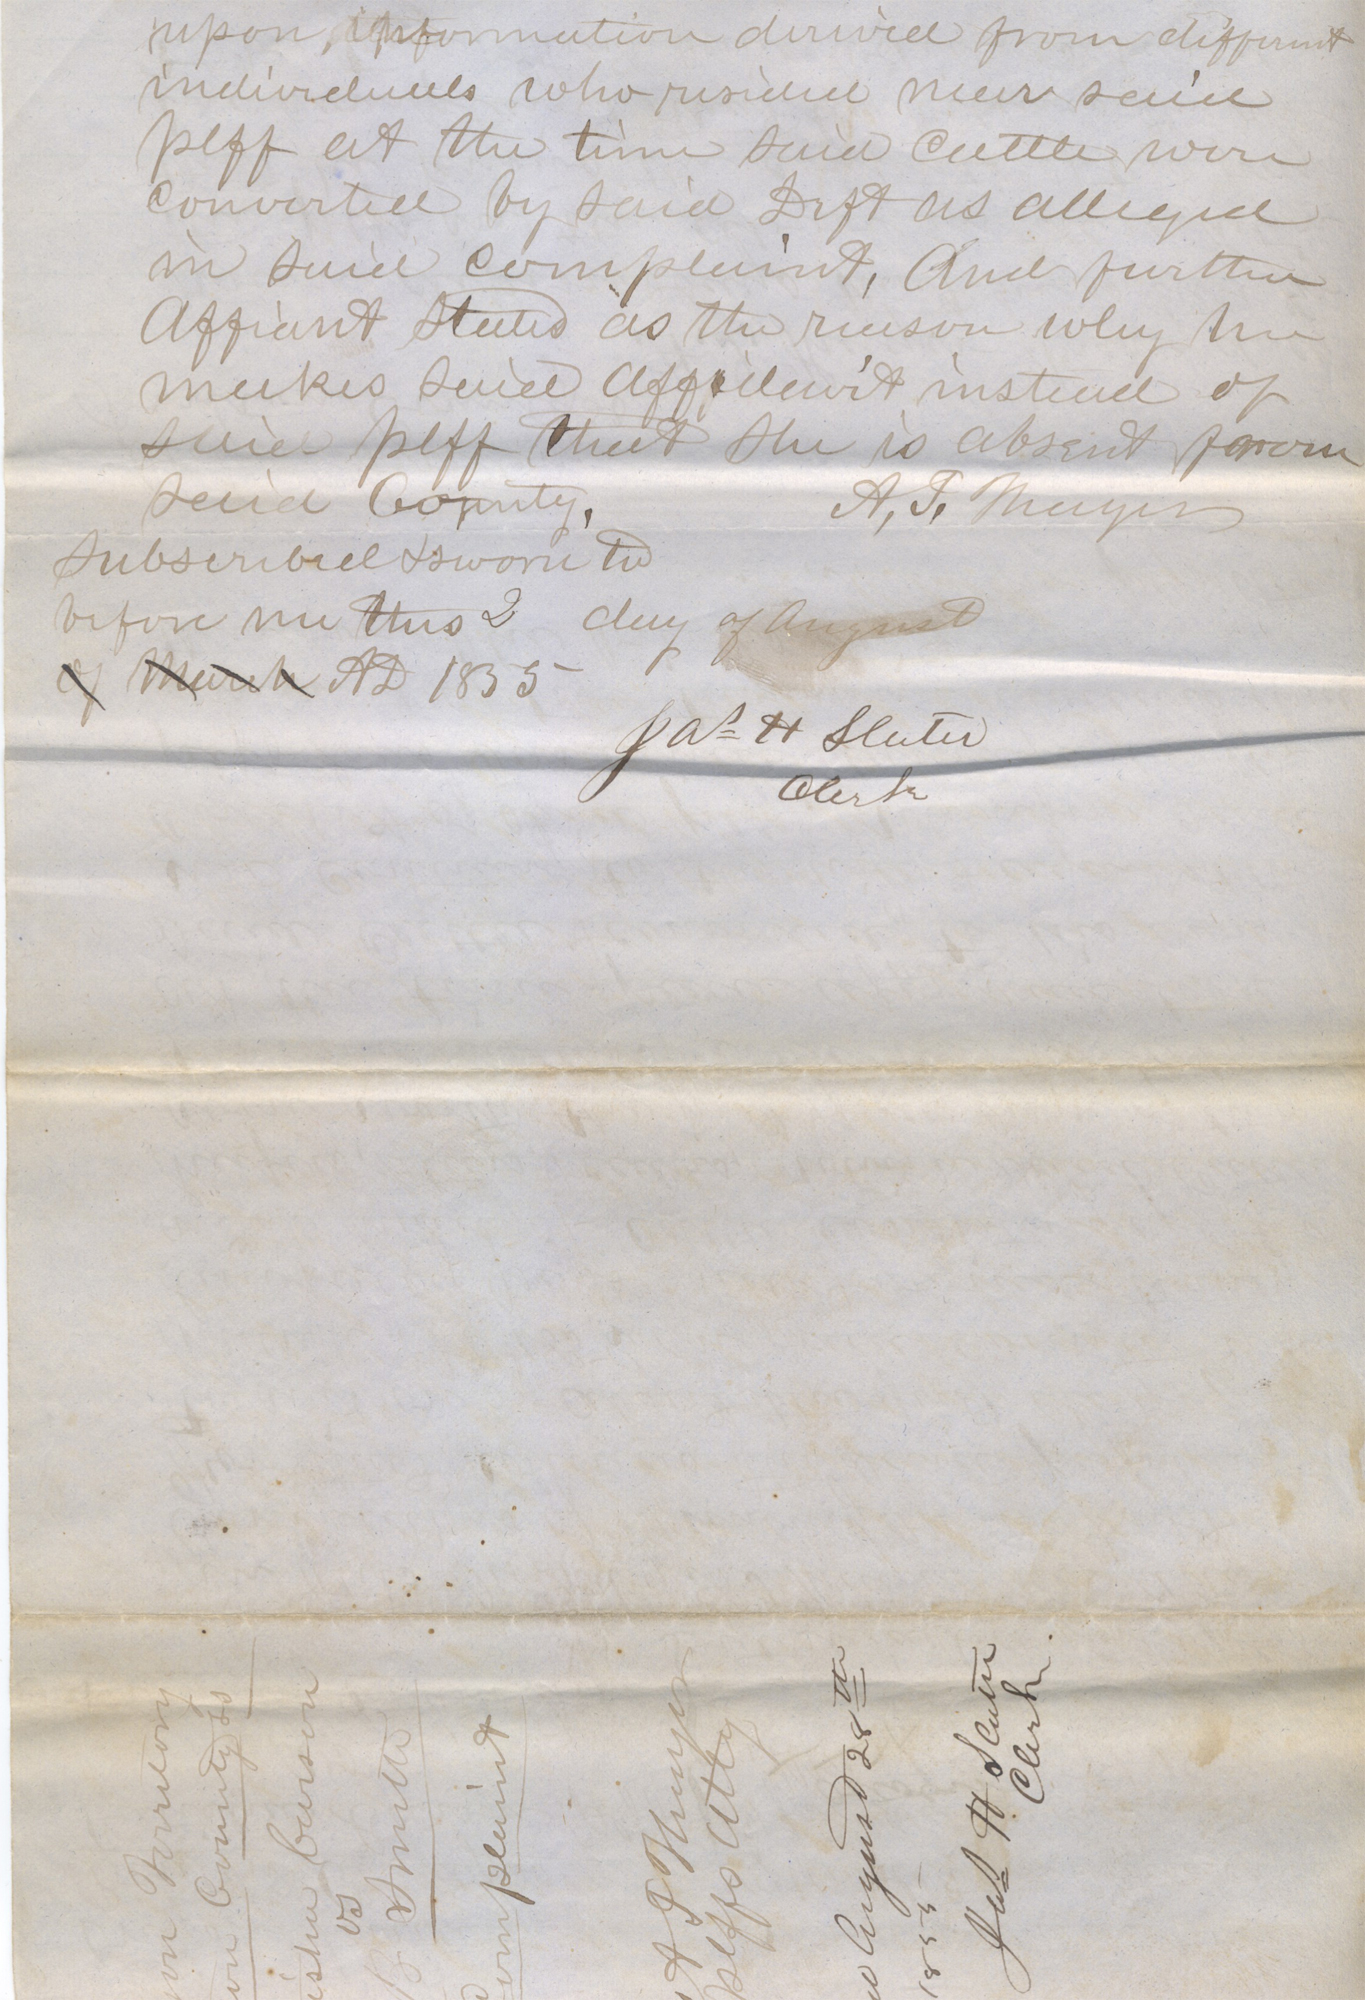 upon, information derived from different
individuals who resided near said
plff at the time said cattle were
converted by said Deft as alleged
in said complaint, And further
Affiant States as the reason why he
makes said Affidavit instead of
said plff that she is absent from
said County. A. T. Thayer
Subscribed & sworn to
before me this 2 day of August
of March AD 1855
Jas H Slater
Clerk
gon Territory
on County ss
isha Carson
vs
Smith
Complaint
A T Thayer
plffs Atty
August 28th
1855
Jas H Slater
Clerk.